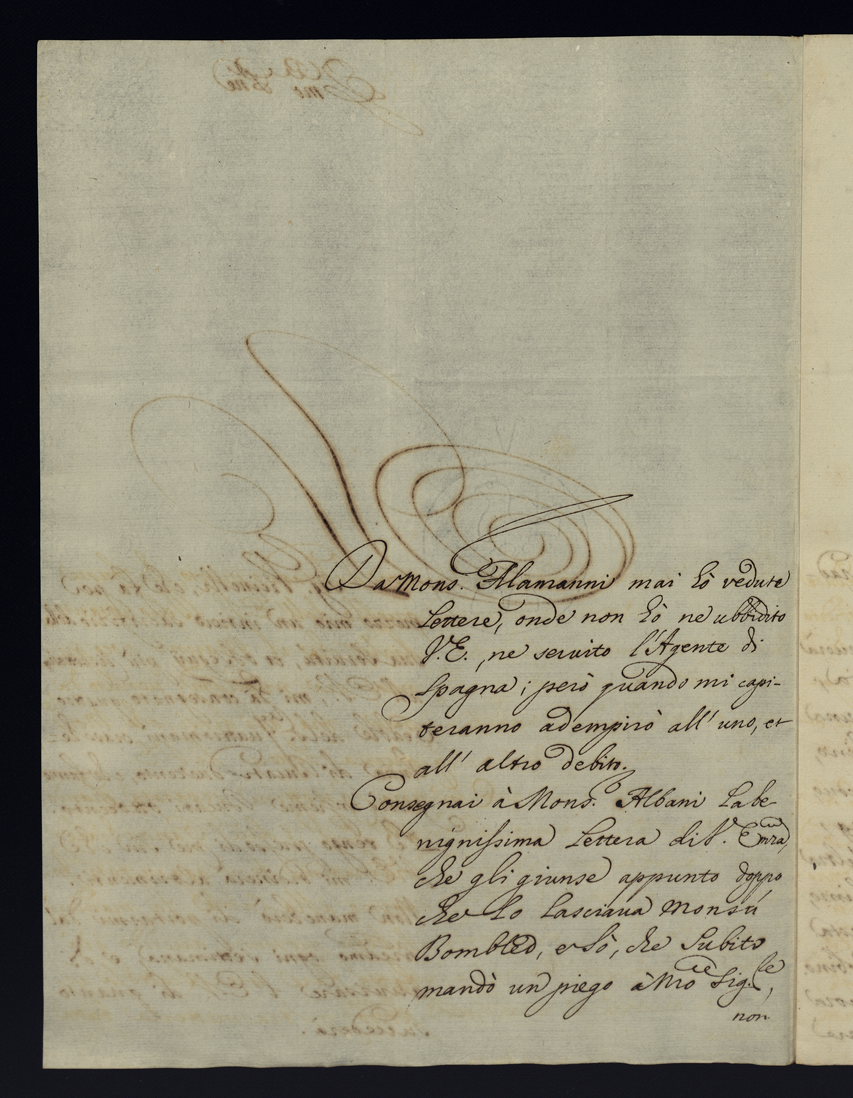 Da Mons. Alamanni mai hò vedute
Lettere, onde non hò ne ubbidito
V. E., ne seruito l'Agente di
Spagna; però quando mi capi-
teranno adempirò all' uno, et
all' altro debito.
Consegnai à Mons. Albani la be-
nignissima Lettera di V. Emza,
che gli giunse appunto doppo
che lo lasciaua Monsù
e sò, che subito
mandò un piego à
non